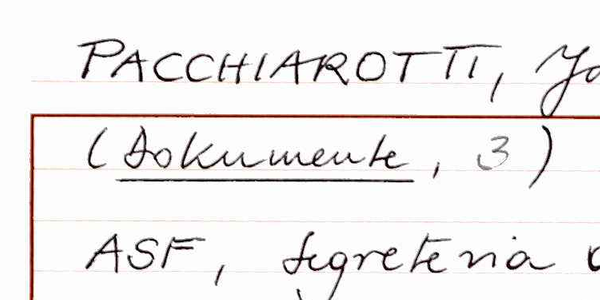 PACCHIAROTTI, Ja
(Dokumente, 3)
ASF, Segreteria